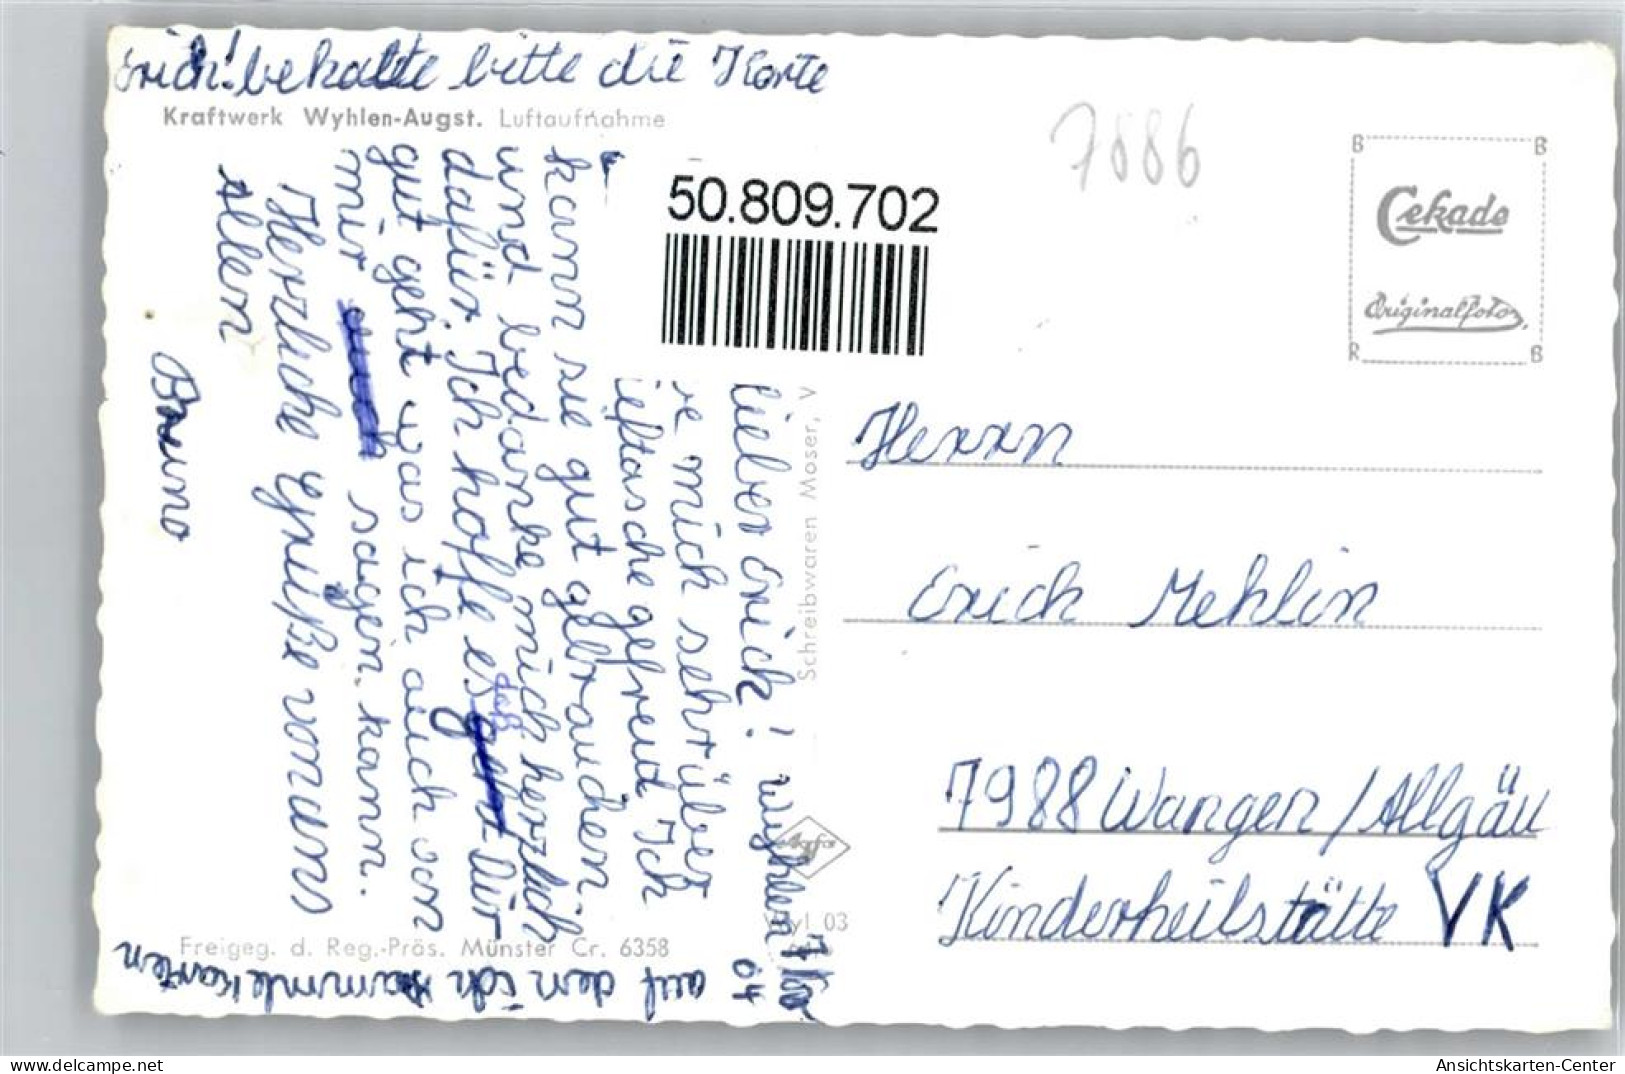 Erich! bekalte bitte die Karte
Kraftwerk Wyhlen-Augst. Luftaufnahme
7886
50.809.702
B B
Cekade
Originalfotos.
R B
Wyhlen
Lieber Erich!
mich sehr über
ieftasche gefreut Ich
kann sie gut gebrauchen.
und bedanke mich herzlich
dafür. Ich hoffe es daß Dir
gut geht was ich auch von
mir auch sagen kann.
Herzliche Grüße von uns
Allen
Bruno
auf den ich sammle Karten
Schreibwaren Moser, V
Agfa
Wyl 03
Freigeg. d. Reg.-Präs. Münster Cr. 6358
Herrn
Erich Mehlin
7988 Wangen / Allgäu
Kinderheilstätte VK
Ansichtskarten-Center